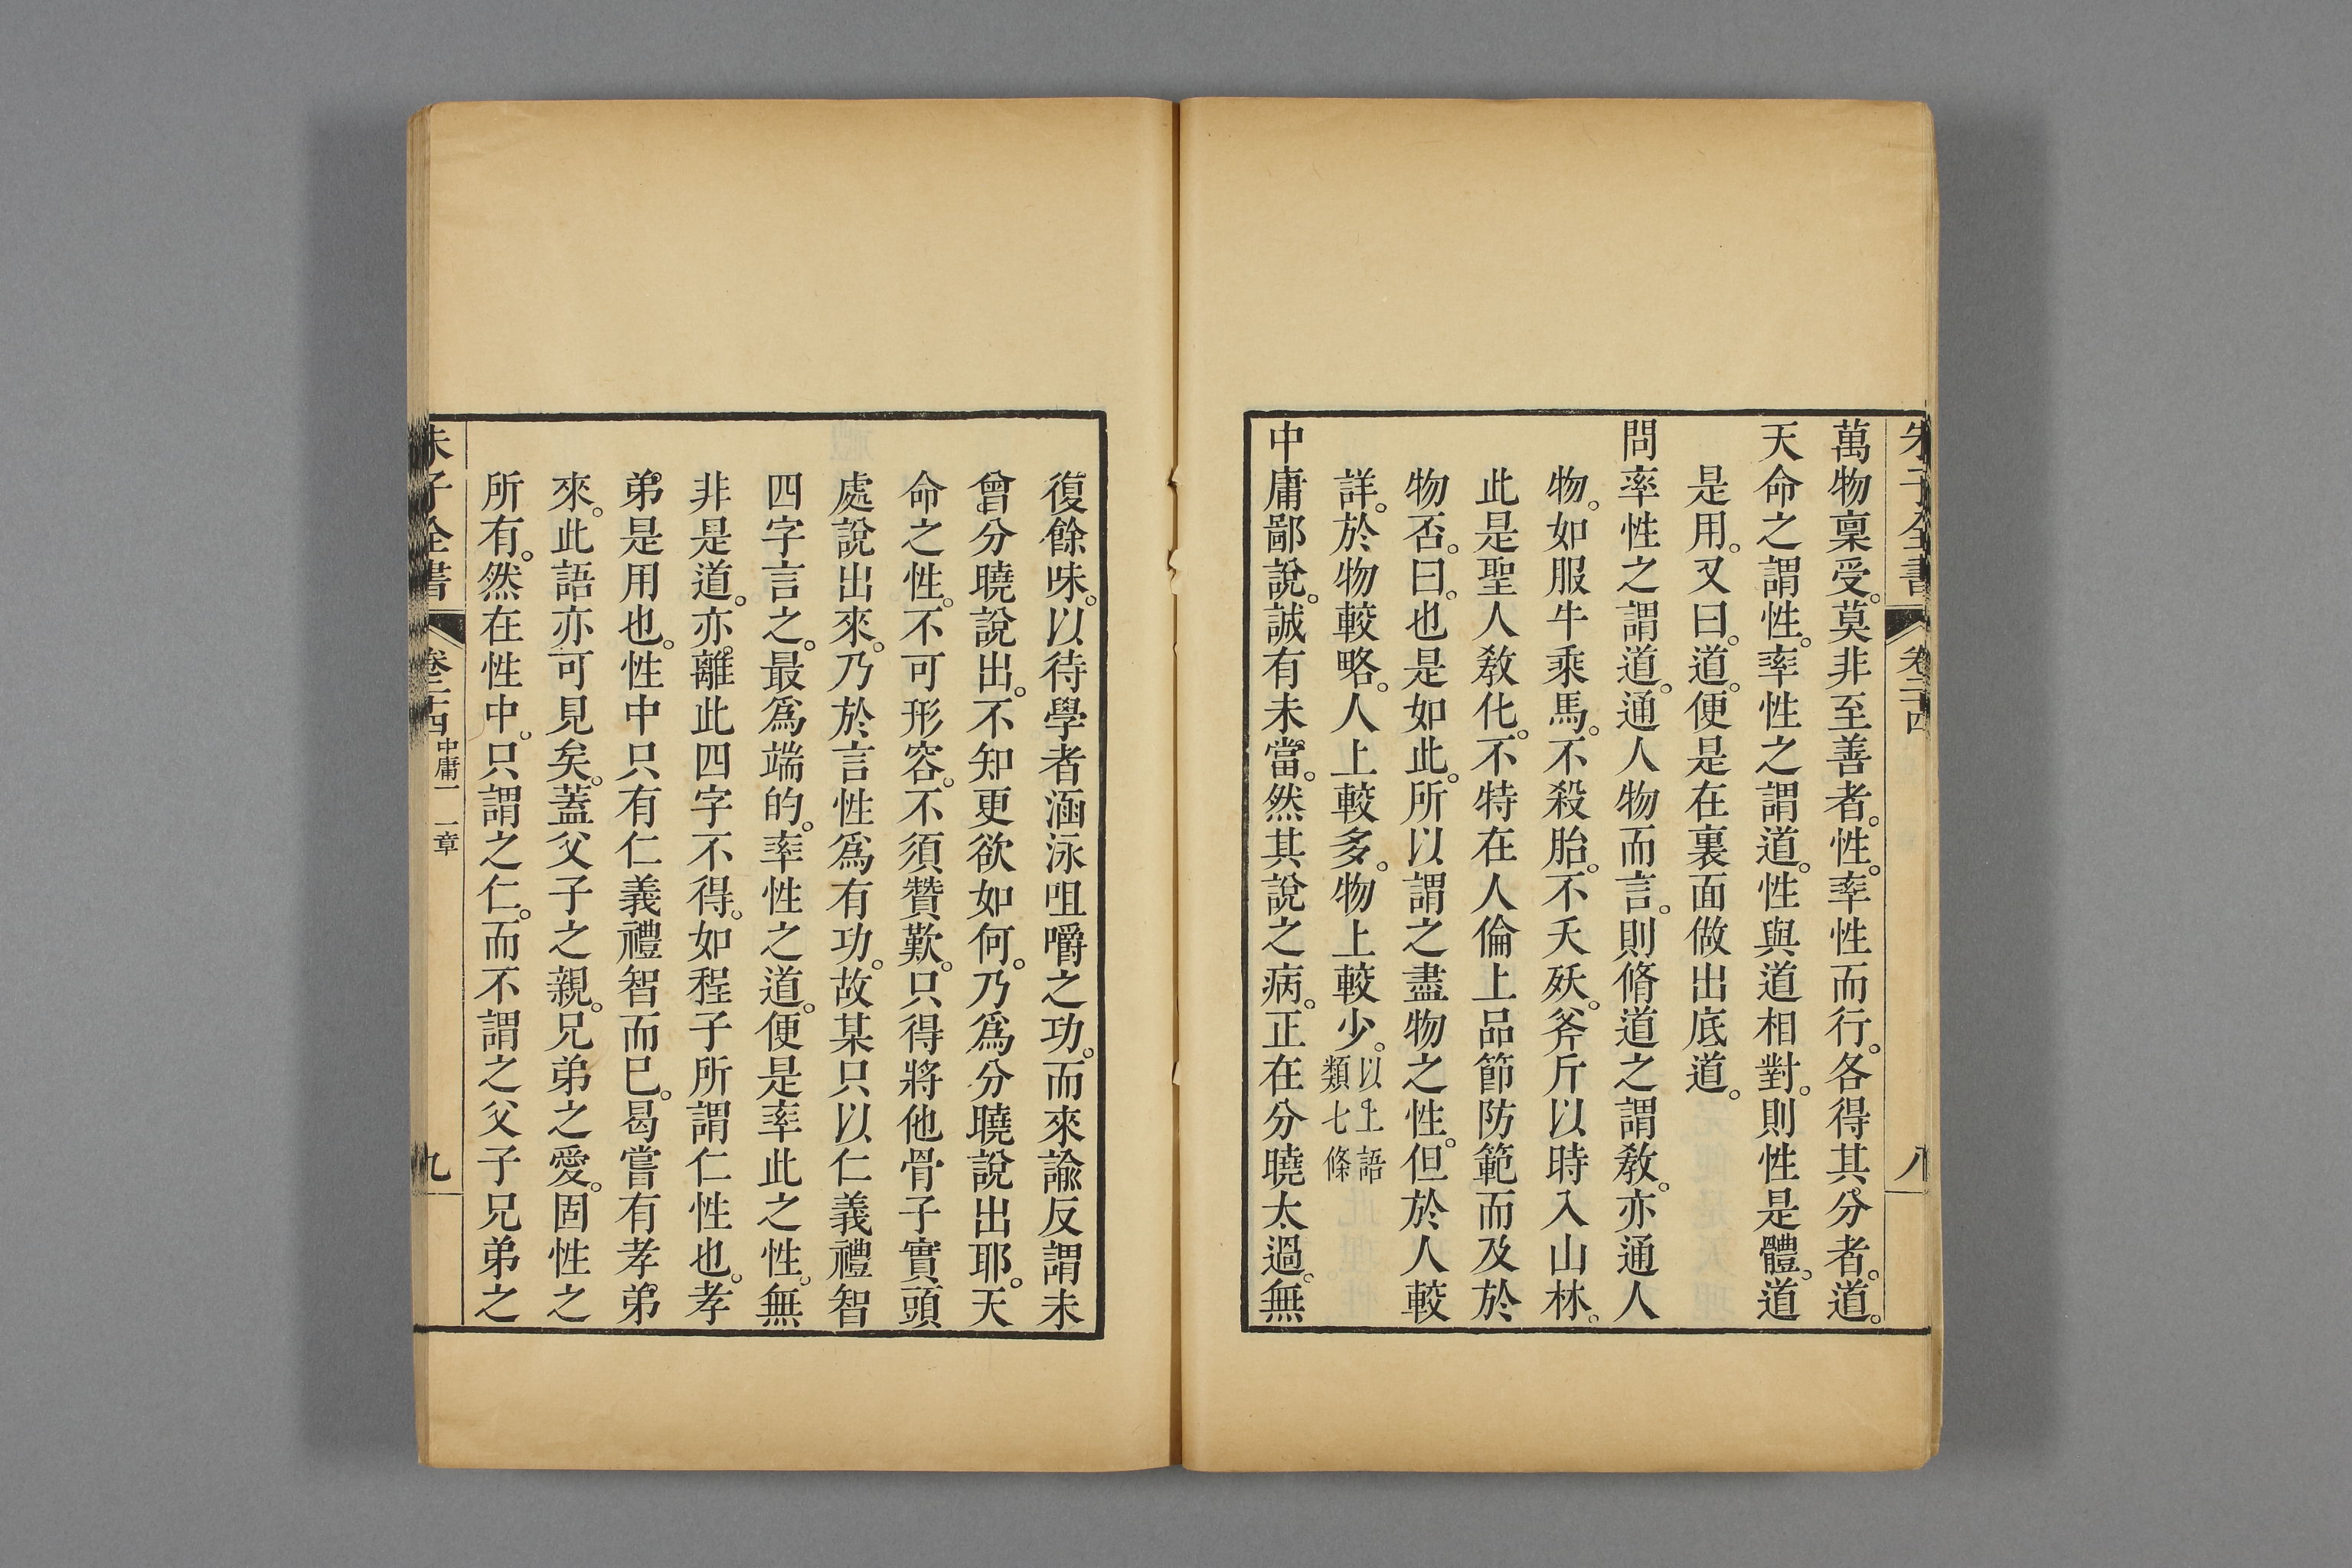 朱子全書 卷二十四 八
萬物稟受。莫非至善者。性。率性而行。各得其分者。道。
天命之謂性。率性之謂道。性與道相對。則性是體。道
是用。又曰。道。便是在裏面做出底道。
問率性之謂道。通人物而言。則脩道之謂敎。亦通人
物。如服牛乘馬。不殺胎。不夭殀。斧斤以時入山林。
此是聖人敎化。不特在人倫上品節防範而及於
物否。曰。也是如此。所以謂之盡物之性。但於人較
詳。於物較略。人上較多。物上較少。以上語類七條
中庸鄙說。誠有未當。然其說之病。正在分曉太過。無
復餘味。以待學者涵泳咀嚼之功。而來諭反謂未
曾分曉說出。不知更欲如何。乃爲分曉說出耶。天
命之性。不可形容。不須贊歎。只得將他骨子實頭
處說出來。乃於言性爲有功。故某只以仁義禮智
四字言之。最爲端的。率性之道。便是率此之性。無
非是道。亦離此四字不得。如程子所謂仁性也。孝
弟是用也。性中只有仁義禮智而已。曷嘗有孝弟
來。此語亦可見矣。蓋父子之親。兄弟之愛。固性之
所有。然在性中。只謂之仁。而不謂之父子兄弟之
朱子全書 卷二十四 中庸一 一章 九